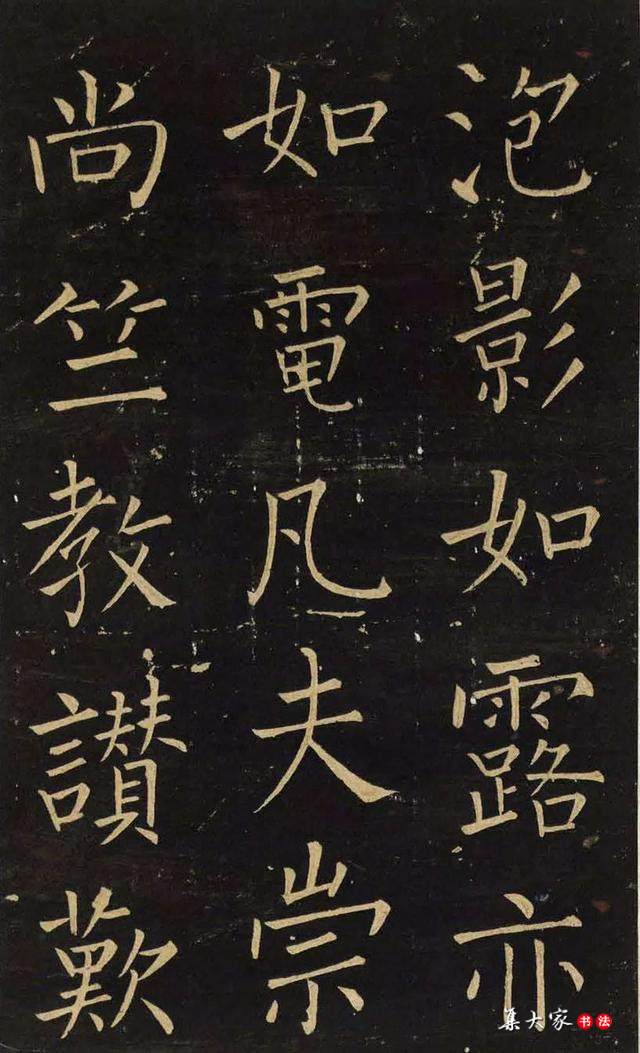 泡影如露亦
如電凡夫崇
尚竺教讃歎
集大家书法